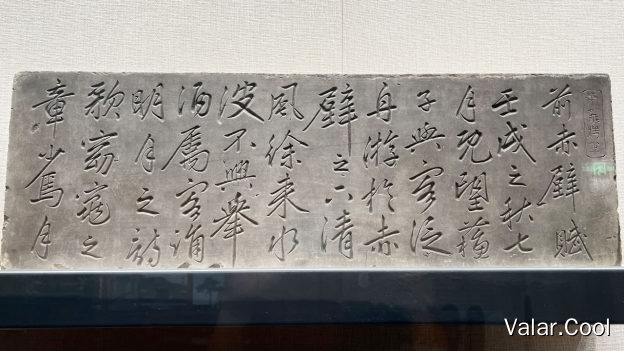 前赤壁賦
壬戌之秋七
月既望蘇
子與客泛
舟游於赤
壁之下清
風徐来水
波不興舉
酒屬客誦
明月之詩
歌窈窕之
章少焉月
Valar.Cool